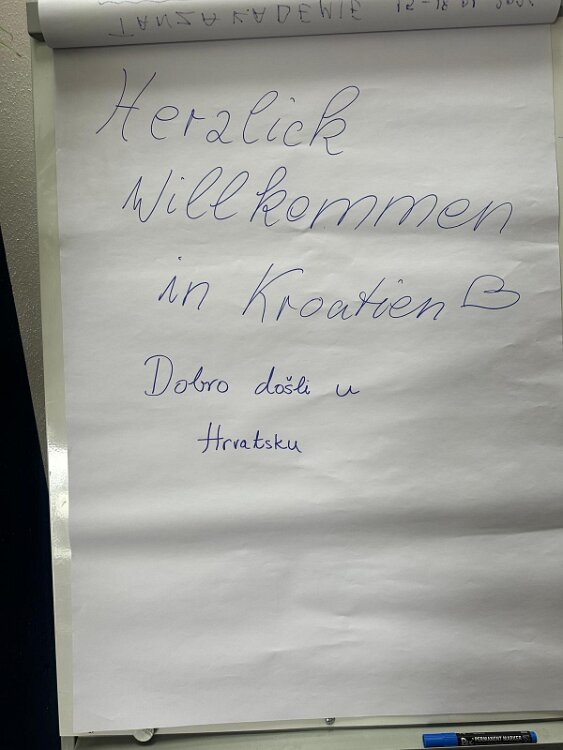 TANZAKADEMIE
Herzlick
Willkommen
in Kroatien
Dobro došli u
Hrvatsku
PERMANENT MARKER